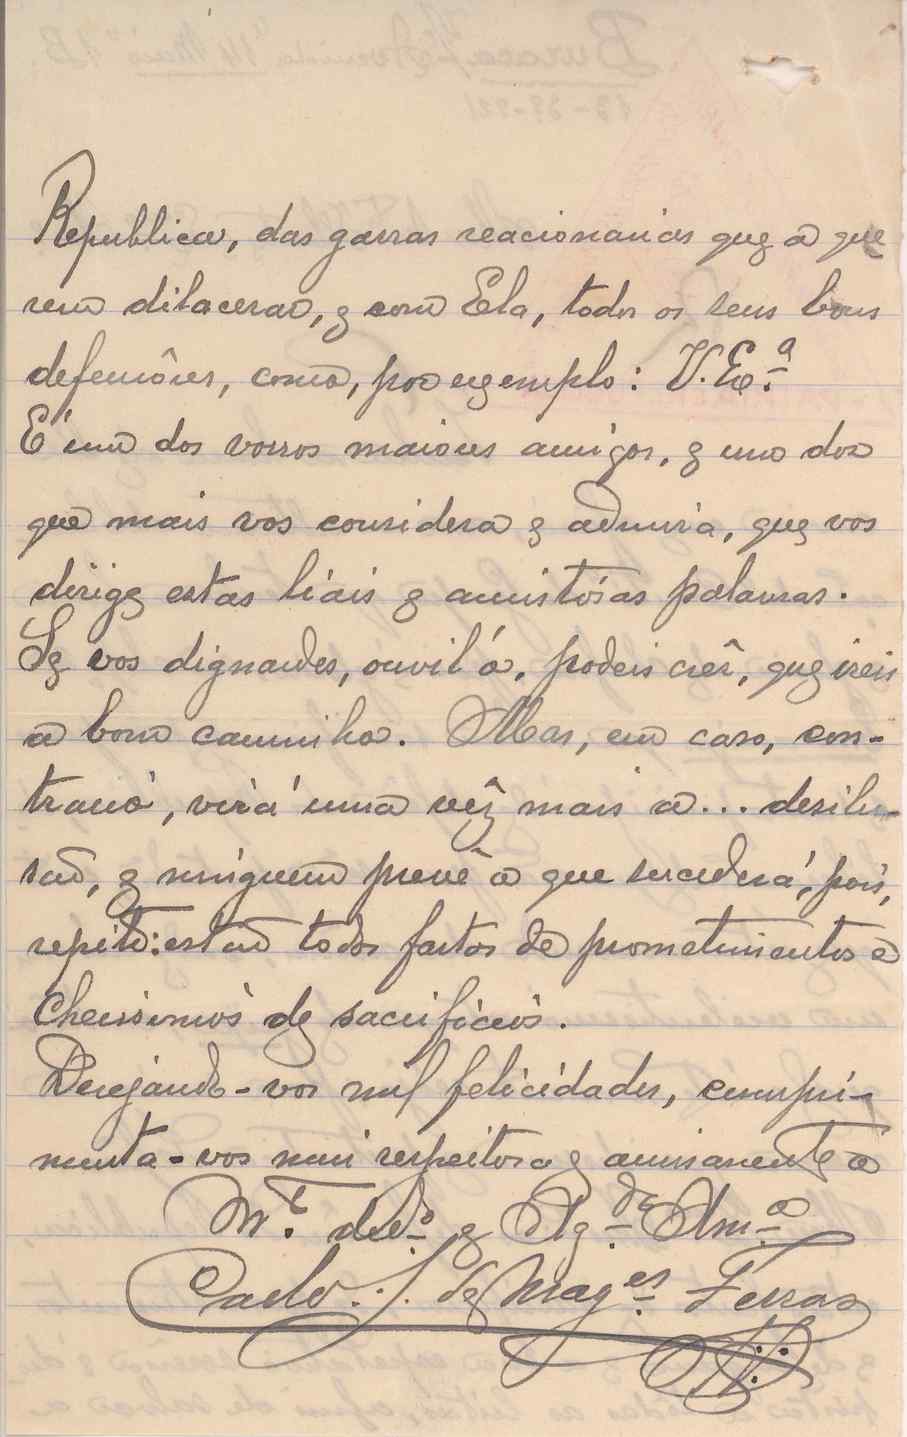 Republica, das garras reacionarias que a que
rem dilacerar, e com Ela, todos os seus bons
defensôres, como, por exemplo: V. Exª.
É um dos vossos maiores amigos, e um dos
que mais vos considera e admira, que vos
dirige estas liais e amistósas palavras.
Se vos dignardes, ouvil'ó, podeis crêr, que ireis
a bom caminho. Mas, em caso, con-
trario, virá uma vêz mais a... desilu-
são, e ninguem prevê o que sucederá, pois,
repito: estão todos fartos de prometimentos e
cheissimos de sacrificios.
Desejando-vos mil felicidades, cumpri-
menta-vos mui respeitosa e
Mt. dedº e Agde Amº
Carlos S. de Magês Ferraz